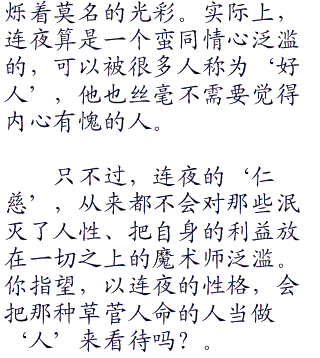 烁着莫名的光彩。实际上，
连夜算是一个蛮同情心泛滥
的，可以被很多人称为‘好
人’，他也丝毫不需要觉得
内心有愧的人。
只不过，连夜的‘仁
慈’，从来都不会对那些泯
灭了人性、把自身的利益放
在一切之上的魔术师泛滥。
你指望，以连夜的性格，会
把那种草菅人命的人当做
‘人’来看待吗？。